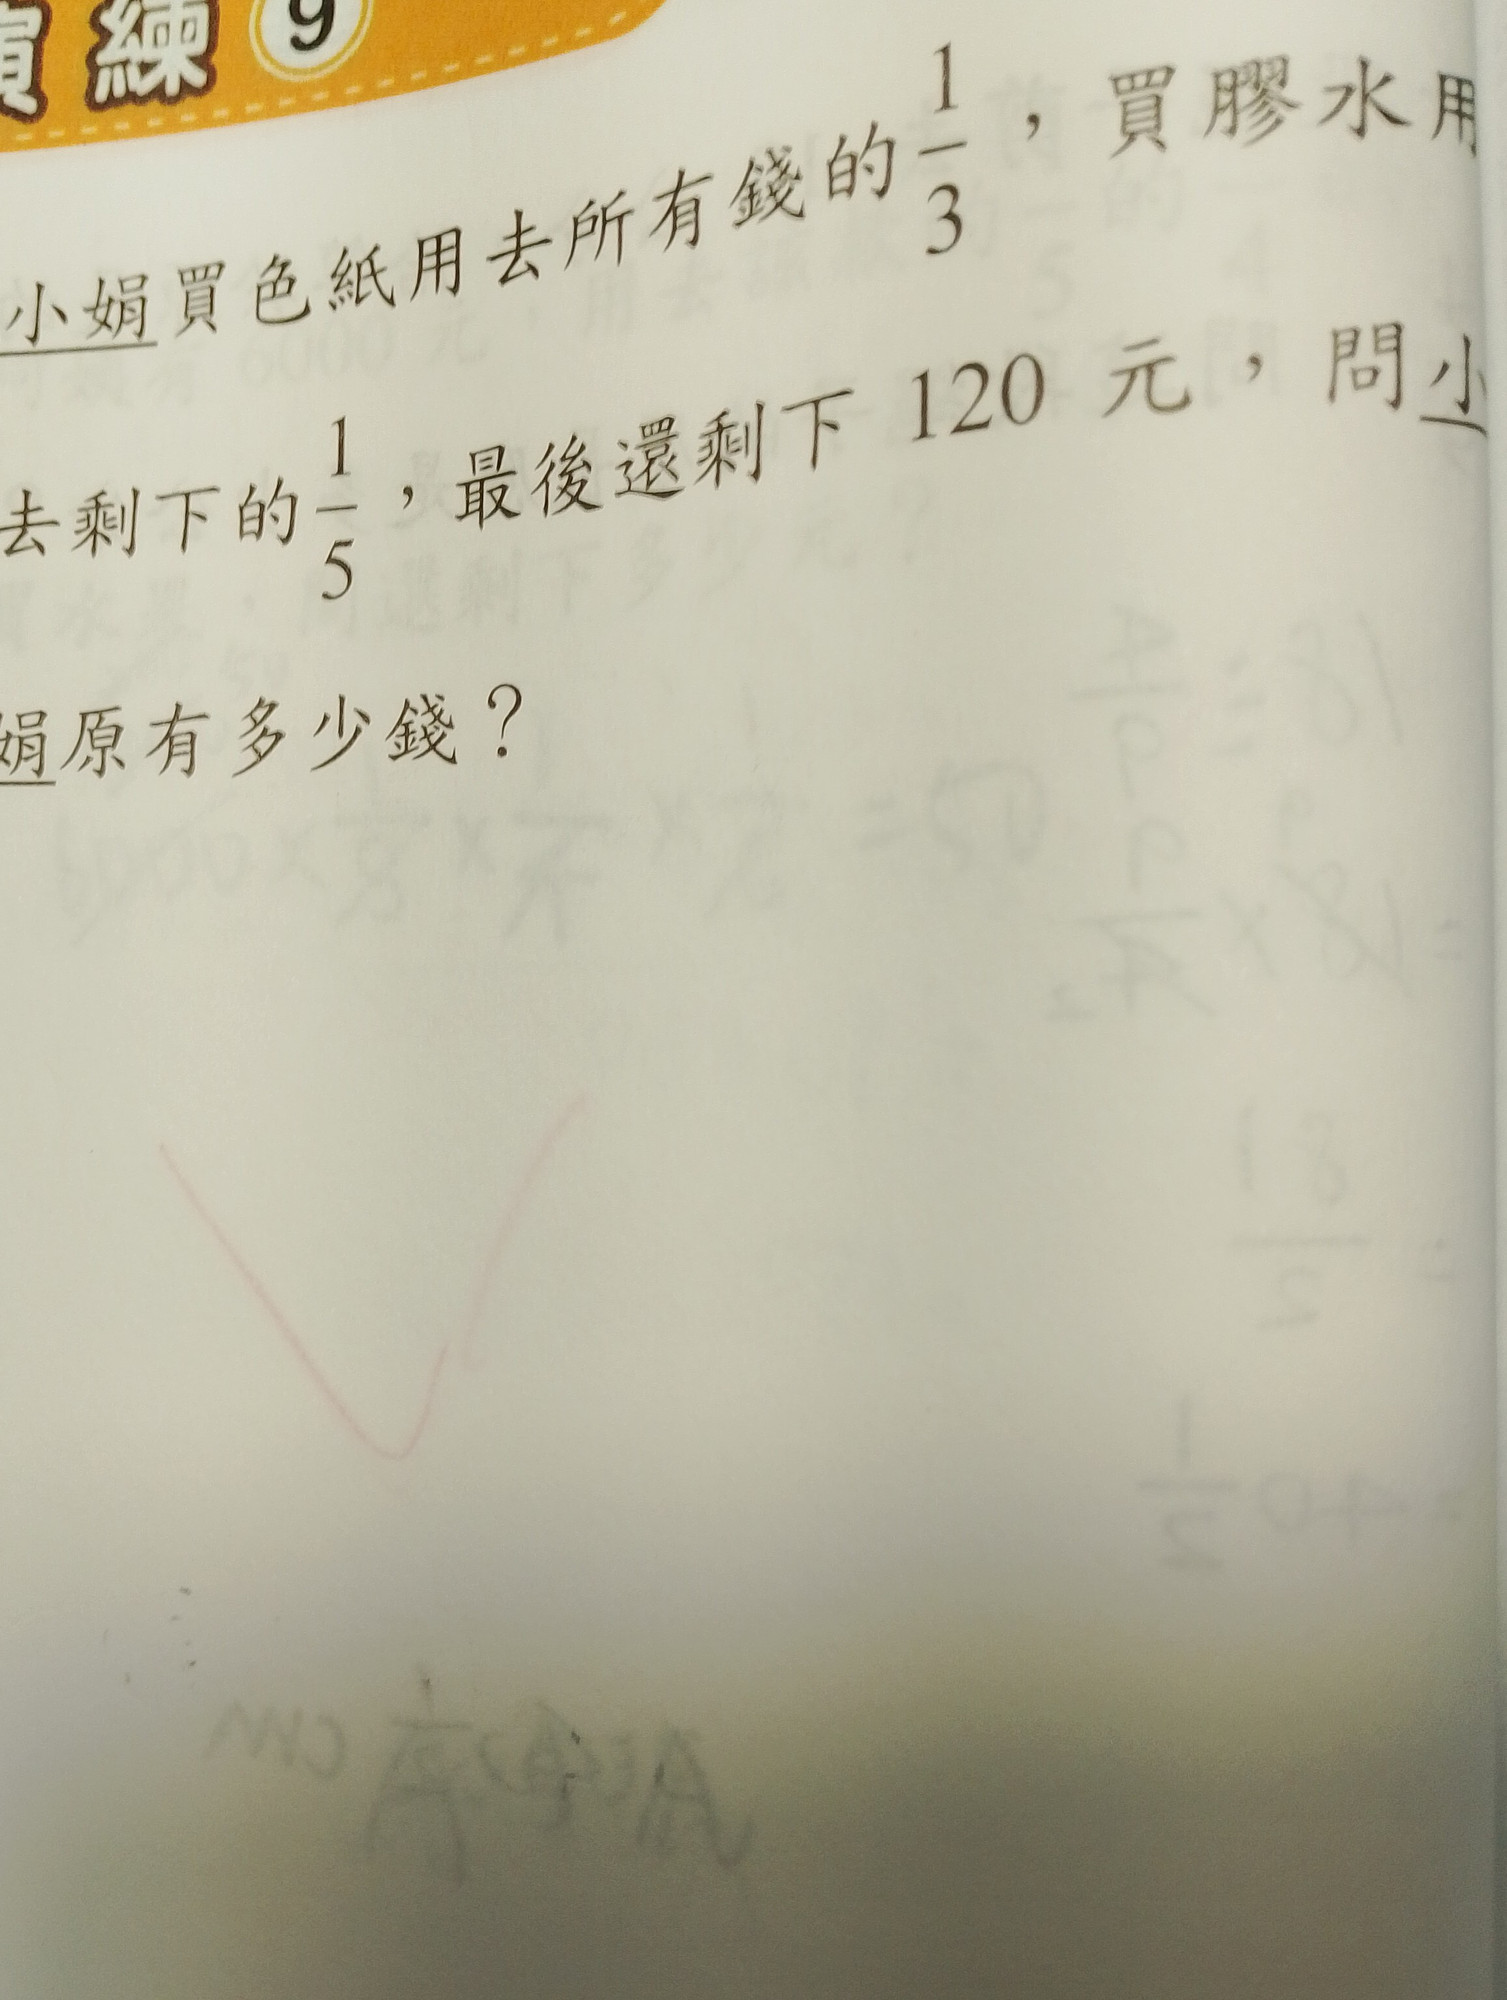 演練9
小娟買色紙用去所有錢的1/3，買膠水用
去剩下的1/5，最後還剩下 120 元，問小
娟原有多少錢？